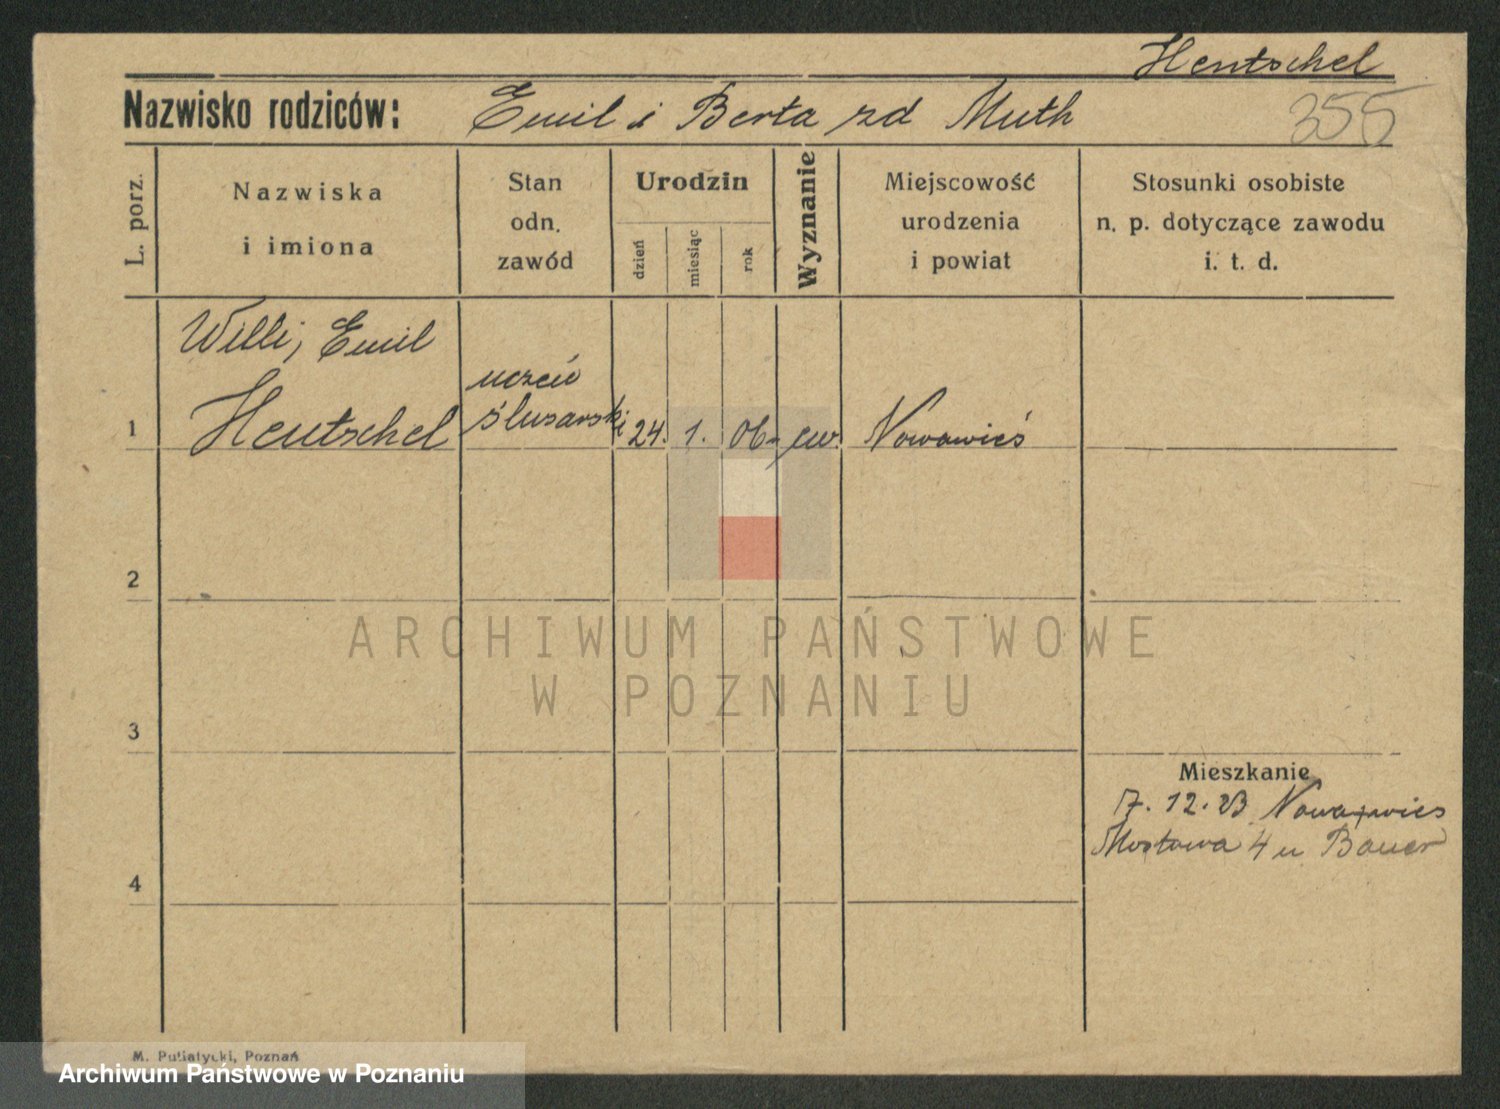 Hentschel
Nazwisko rodziców: Emil i Berta zd Muth
355
L. porz.
Nazwiska
i imiona
Stan
odn.
zawód
Urodzin
dzień
miesiąc
rok
Wyznanie
Miejscowość
urodzenia
i powiat
Stosunki osobiste
n. p. dotyczące zawodu
i. t. d.
Willi, Emil
Hentschel
uczeń
ślusarski
1
24. 1. 06. ew. Nowawieś
2
ARCHIWUM PAŃSTWOWE
W POZNANIU
3
Mieszkanie
7. 12. 23 Nowawies
Mostowa 4 u Bauer
4
M. Putiatycki, Poznań
Archiwum Państwowe w Poznaniu